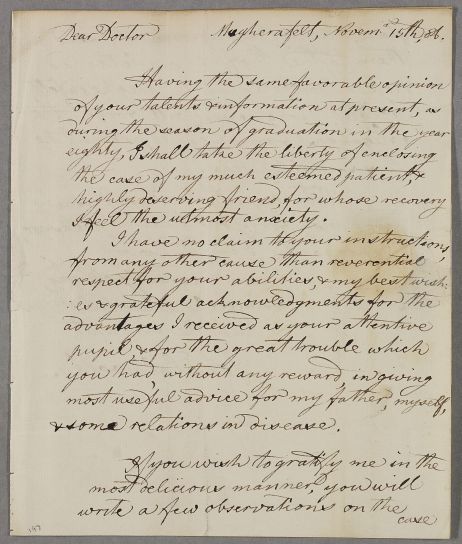 Dear Doctor Magherafelt, Novemr 15th, 86.
Having the same favorable opinion
of your talents & information at present, as
during the season of graduation in the year
eighty, I shall take the liberty of enclosing
the case of my much esteemed patient, &
highly deserving friend, for whose recovery
I feel the utmost anxiety.
I have no claim to your instructions,
from any other cause than reverential
respect for your abilities, & my best wish:
:es & grateful acknowledgments for the
advantages I received as your attentive
pupil, & for the great trouble which
you had, without any reward, in giving
most useful advice for my father, myself,
& some relations in disease.
If you wish to gratify me in the
most delicious manner, you will
write a few observations on the
case
197